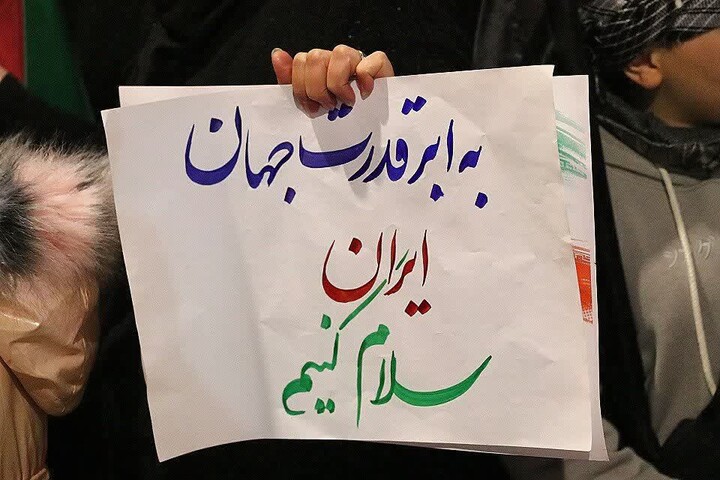 به ابرقدرت جهان
ایران
سلام کنیم